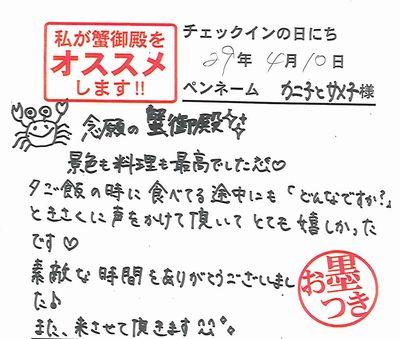 私が蟹御殿を
オススメ
します!!
チェックインの日にち
29年 4月10日
ペンネーム カニ子とサメ子様
念願の蟹御殿
景色も料理も最高でした♡
夕ご飯の時に食べてる途中にも「どんなですか?」
ときさくに声をかけて頂いてとても嬉しかった
です♡
素敵な時間をありがとうございまし
た♪
また、来させて頂きます^^
お墨
つき